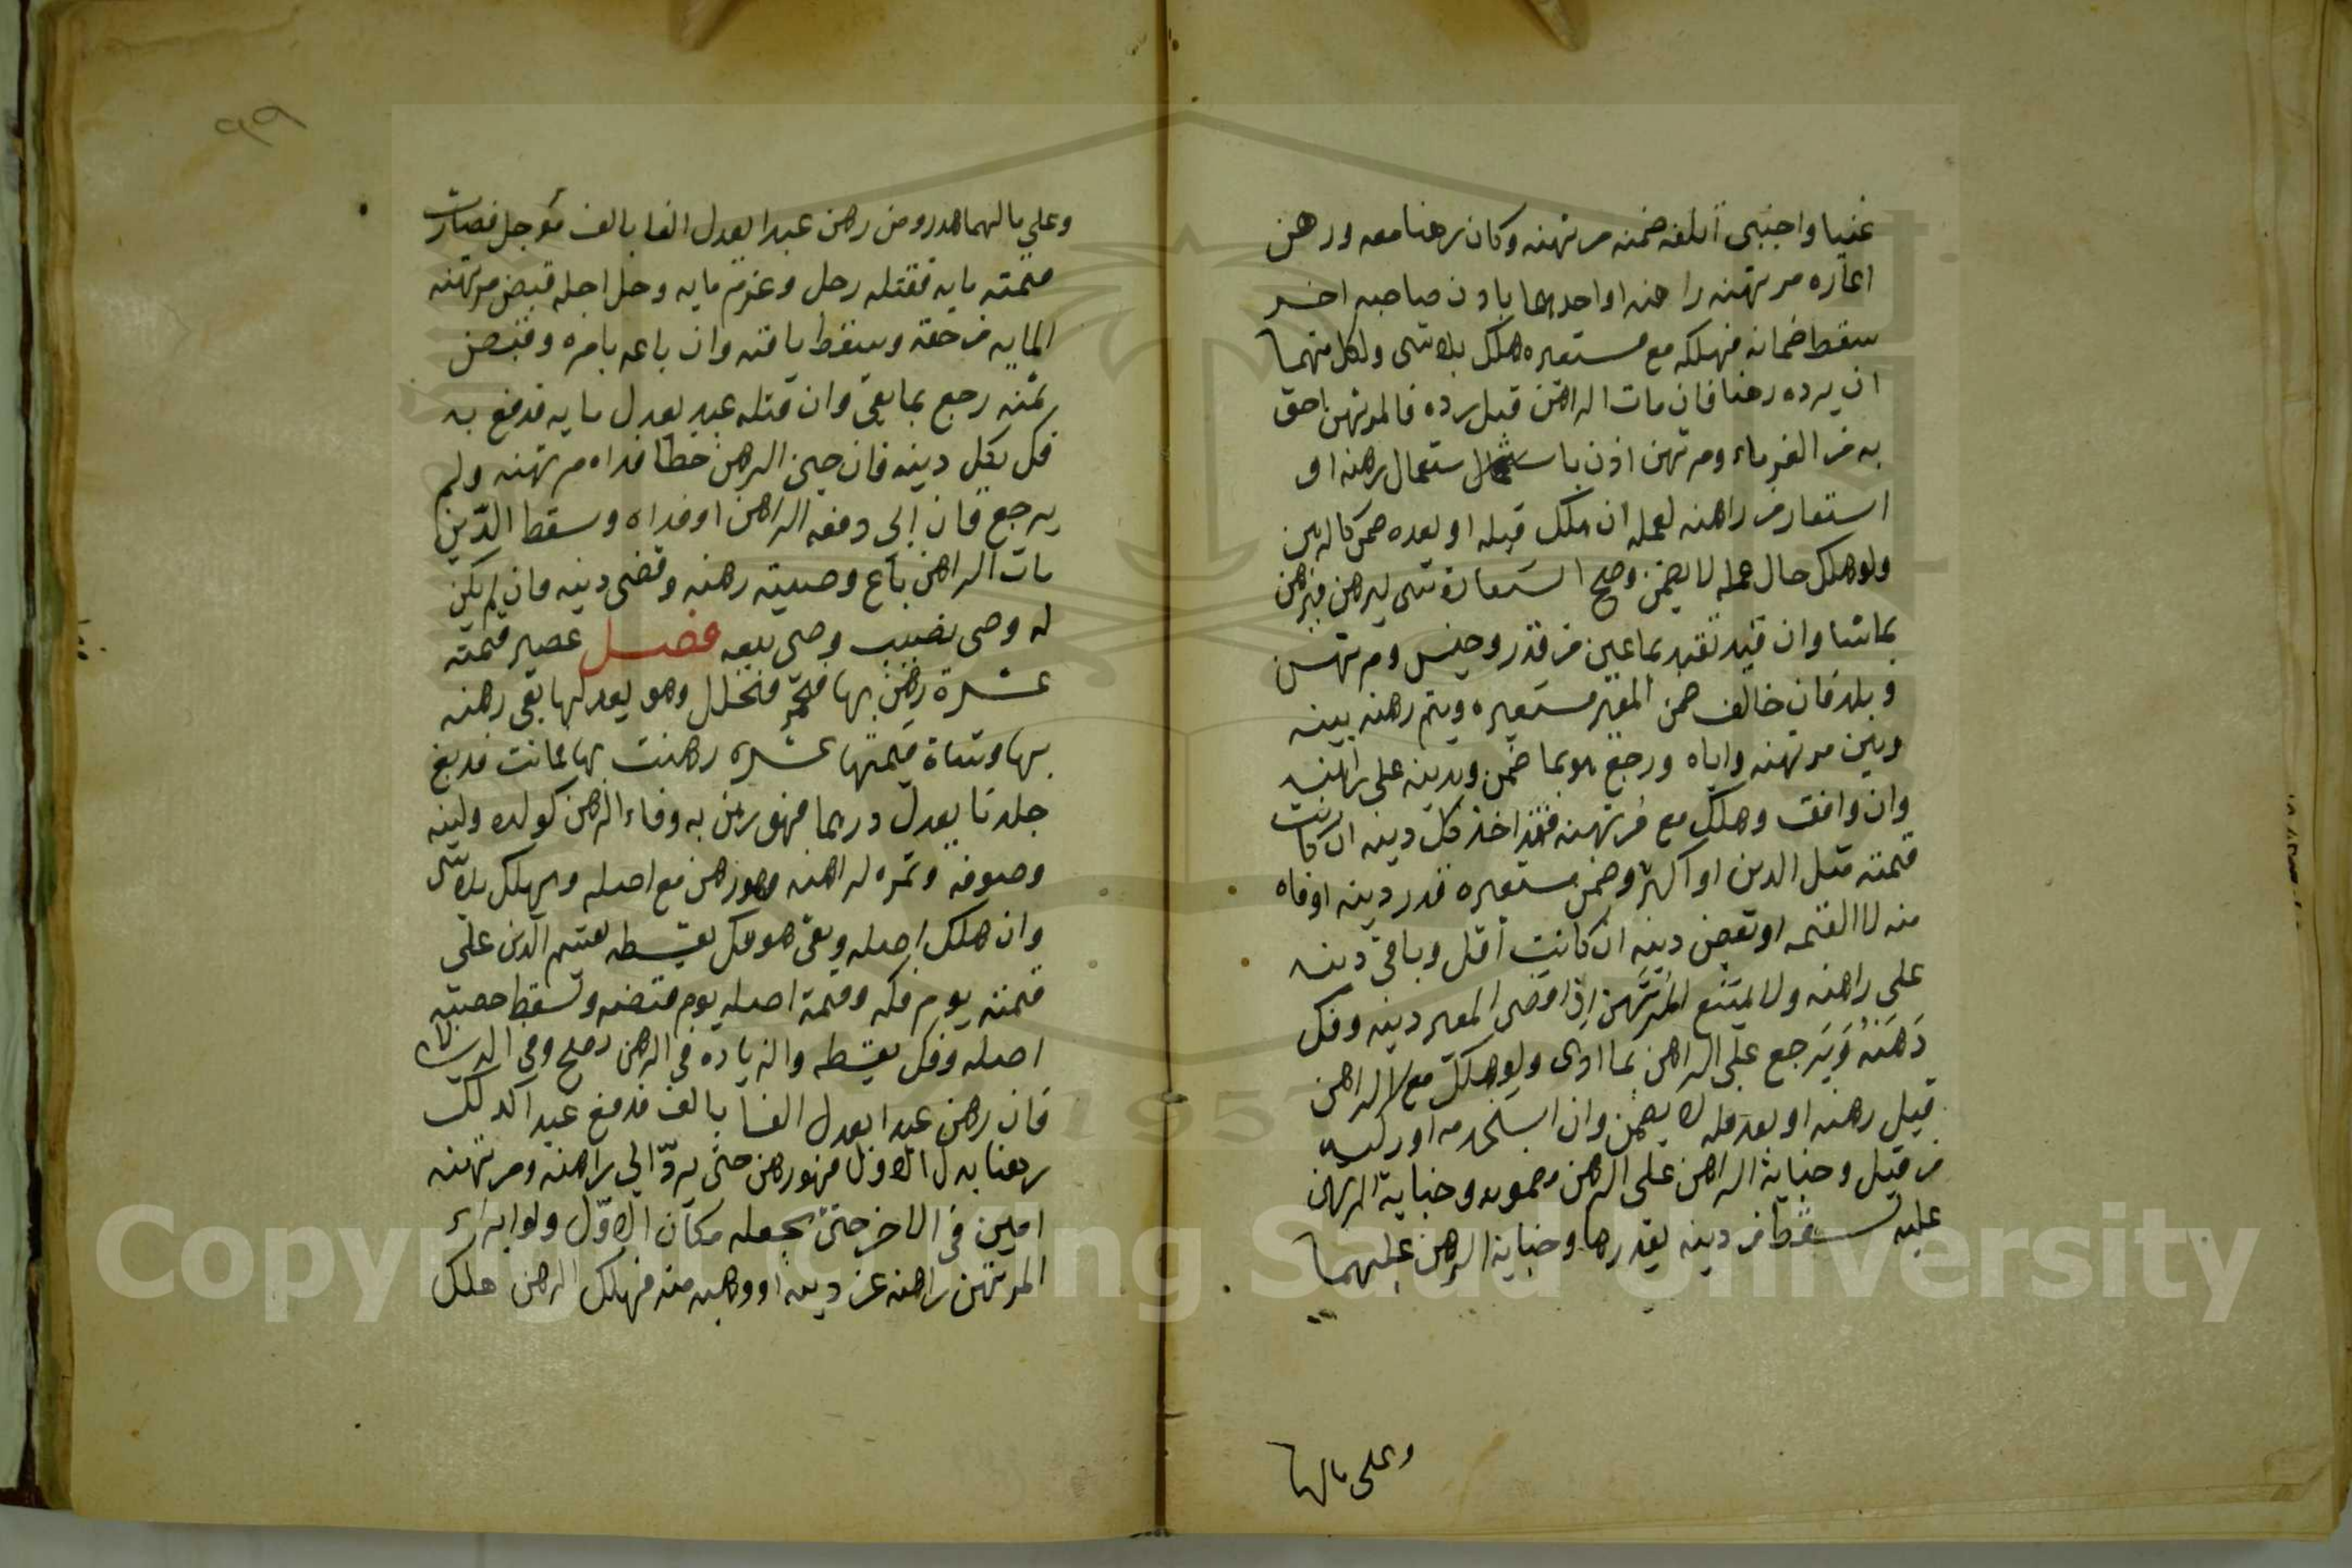 غنيا واجنبي اتلفه ضمنه مرتهنه وكان رهنا معه ورهن
اعاره مرتهنه راهنه او احدهما باذن صاحبه اخر
سقط ضمانه فهلكه مع مستعيره هلك بلا شى ولكل منهما
ان يرده رهنا فان مات الراهن قبل رده فالمرتهن احق
به من الغرماء ومرتهن اذن باستعمال رهنه او
استعار من راهنه لعمل ان هلك قبله او بعده ضمن كالرهن
ولو هلك حال عمله لا يضمن وصح استعارة شى ليرهن فيرهن
بما شا وان قيد تقيد بما عين من قدر وجنس ومرتهن
وبلد فان خالف ضمن المعير مستعيره ويتم رهنه بينه
وبين مرتهنه واياه ورجع هو بما ضمن وبدينه على راهنه
وان وافق وهلك مع مرتهنه فقد اخذ كل دينه ان كانت
قيمته مثل الدين او اكثر وضمن مستعيره قدر دينه اوفاه
منه لا القيمه او بعض دينه ان كانت اقل وباقى دينه
على راهنه ولا يمتنع المرتهن اذا قضى المعير دينه وفك
رهنه ويرجع على الراهن بما ادى ولو هلك مع الراهن
قبل رهنه او بعد فكه لا يضمن وان استخدمه او ركبه
من قبل وجناية الراهن على الرهن مضمونه وجناية المرتهن
عليه تسقط من دينه بقدرها وجناية الرهن عليهما
وعلى مالهما
٩٩
وعلى مالهما هدر ومن رهن عبدا يعدل الفا بالف مؤجل فصارت
قيمته مايه فقتله رجل وغرم مايه وحل اجله قبض مرتهنه
المايه من حقه وسقط باقيه وان باعه بامره وقبض
ثمنه رجع بما بقى وان قتله عبد يعدل مايه فدفع به
فك بكل دينه فان جنى الرهن خطا فداه مرتهنه ولم
يرجع فان ابى دفعه الراهن او فداه وسقط الدين
مات الراهن باع وصيه رهنه وقضى دينه فان لم يكن
له وصى نصب وصى يبيعه فصل عصير قيمته
عشرة رهن بها فتخمر فتخلل وهو يعدلها بقى رهنه
بها وشاة قيمتها عشره رهنت بها فماتت فدبغ
جلدها يعدل درهما فهو رهن به ونماء الرهن كولده ولبنه
وصوفه وثمره لراهنه وهو رهن مع اصله ويهلك بلا شى
وان هلك اصله وبقى هو فك بقسطه يقسم الدين على
قيمته يوم فكه وقيمة اصله يوم قبضه وتسقط حصة
اصله وفك بقسطه والزياده فى الرهن تصح وفى الدين لا
فان رهن عبدا يعدل الفا بالف فدفع عبدا كذلك
رهنا بدل الاول فهو رهن حتى يرد الى راهنه ومرتهنه
امين فى الاخر حتى يجعله مكان الاول ولو ابراء
المرتهن راهنه عن دينه او وهبه منه فهلك الرهن هلك